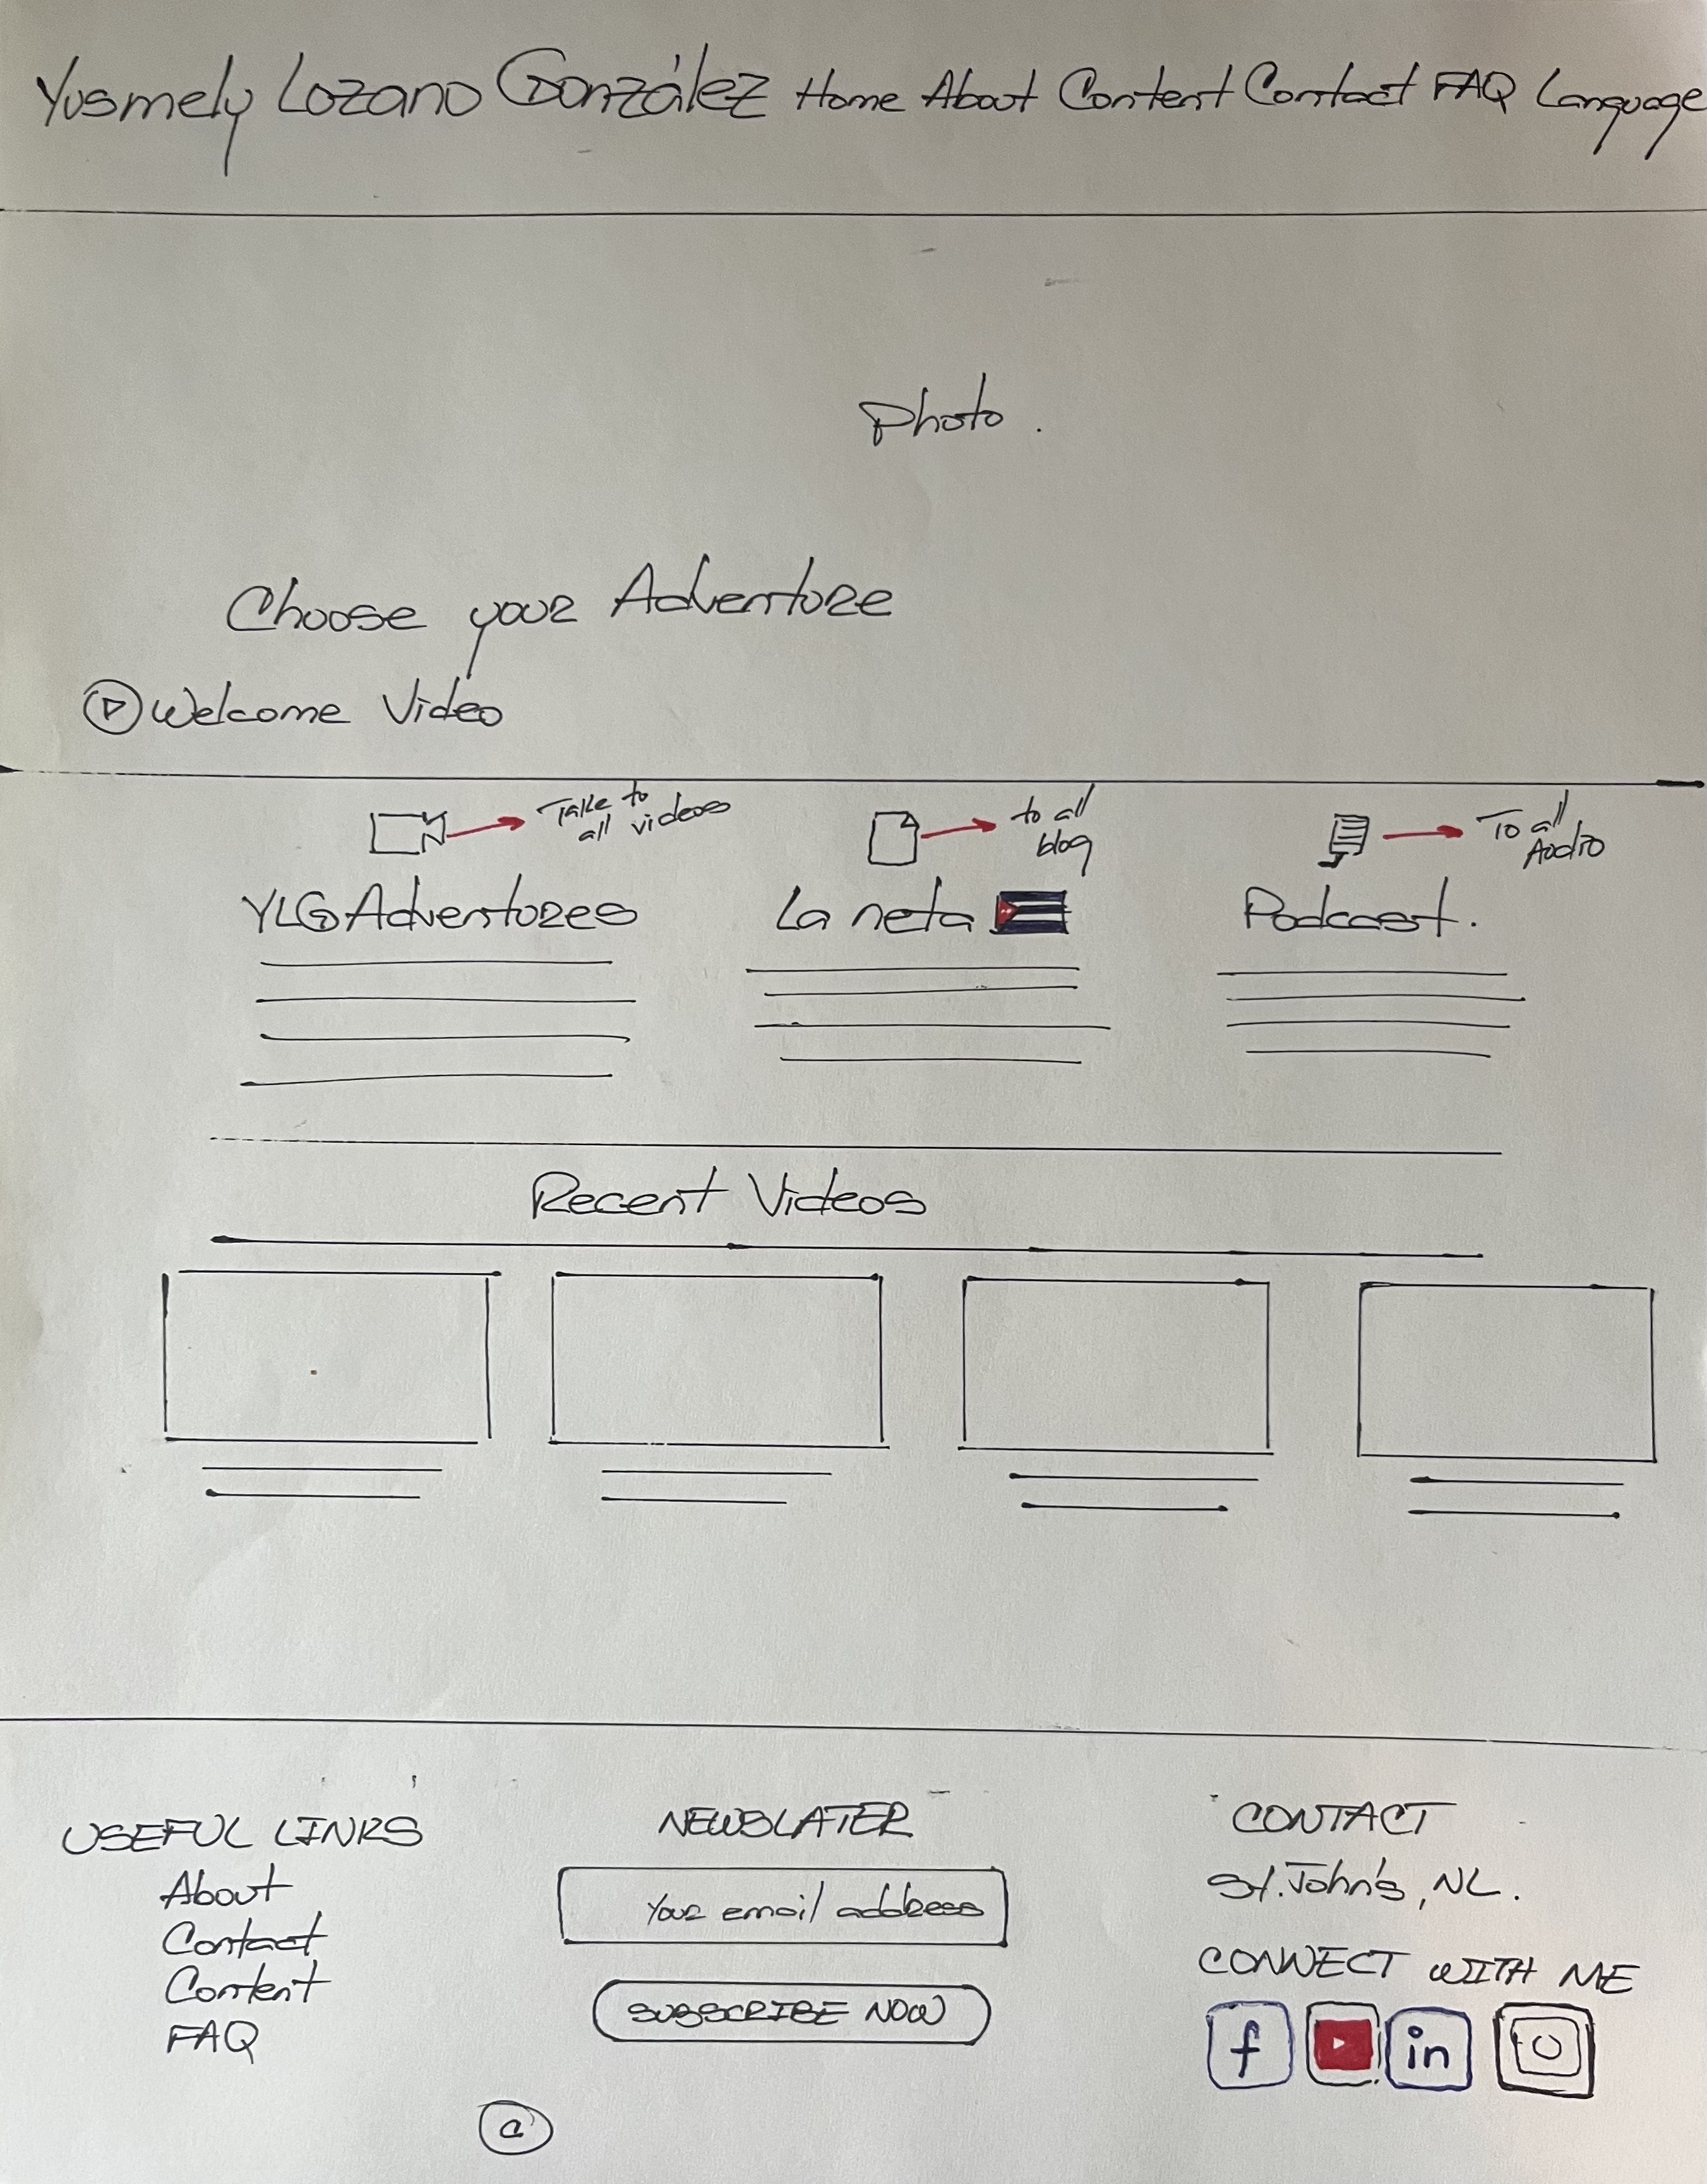 Yusmely Lozano González Home About Content Contact FAQ Language
Photo.
Choose your Adventure
Welcome Video
Take to
all videos
to all
blog
To all
Audio
YLG Adventures
La neta
Podcast.
Recent Videos
USEFUL LINKS
About
Contact
Content
FAQ
NEWSLATER
Your email address
SUBSCRIBE NOW
CONTACT
St. John's, NL.
CONNECT WITH ME
f
in
©